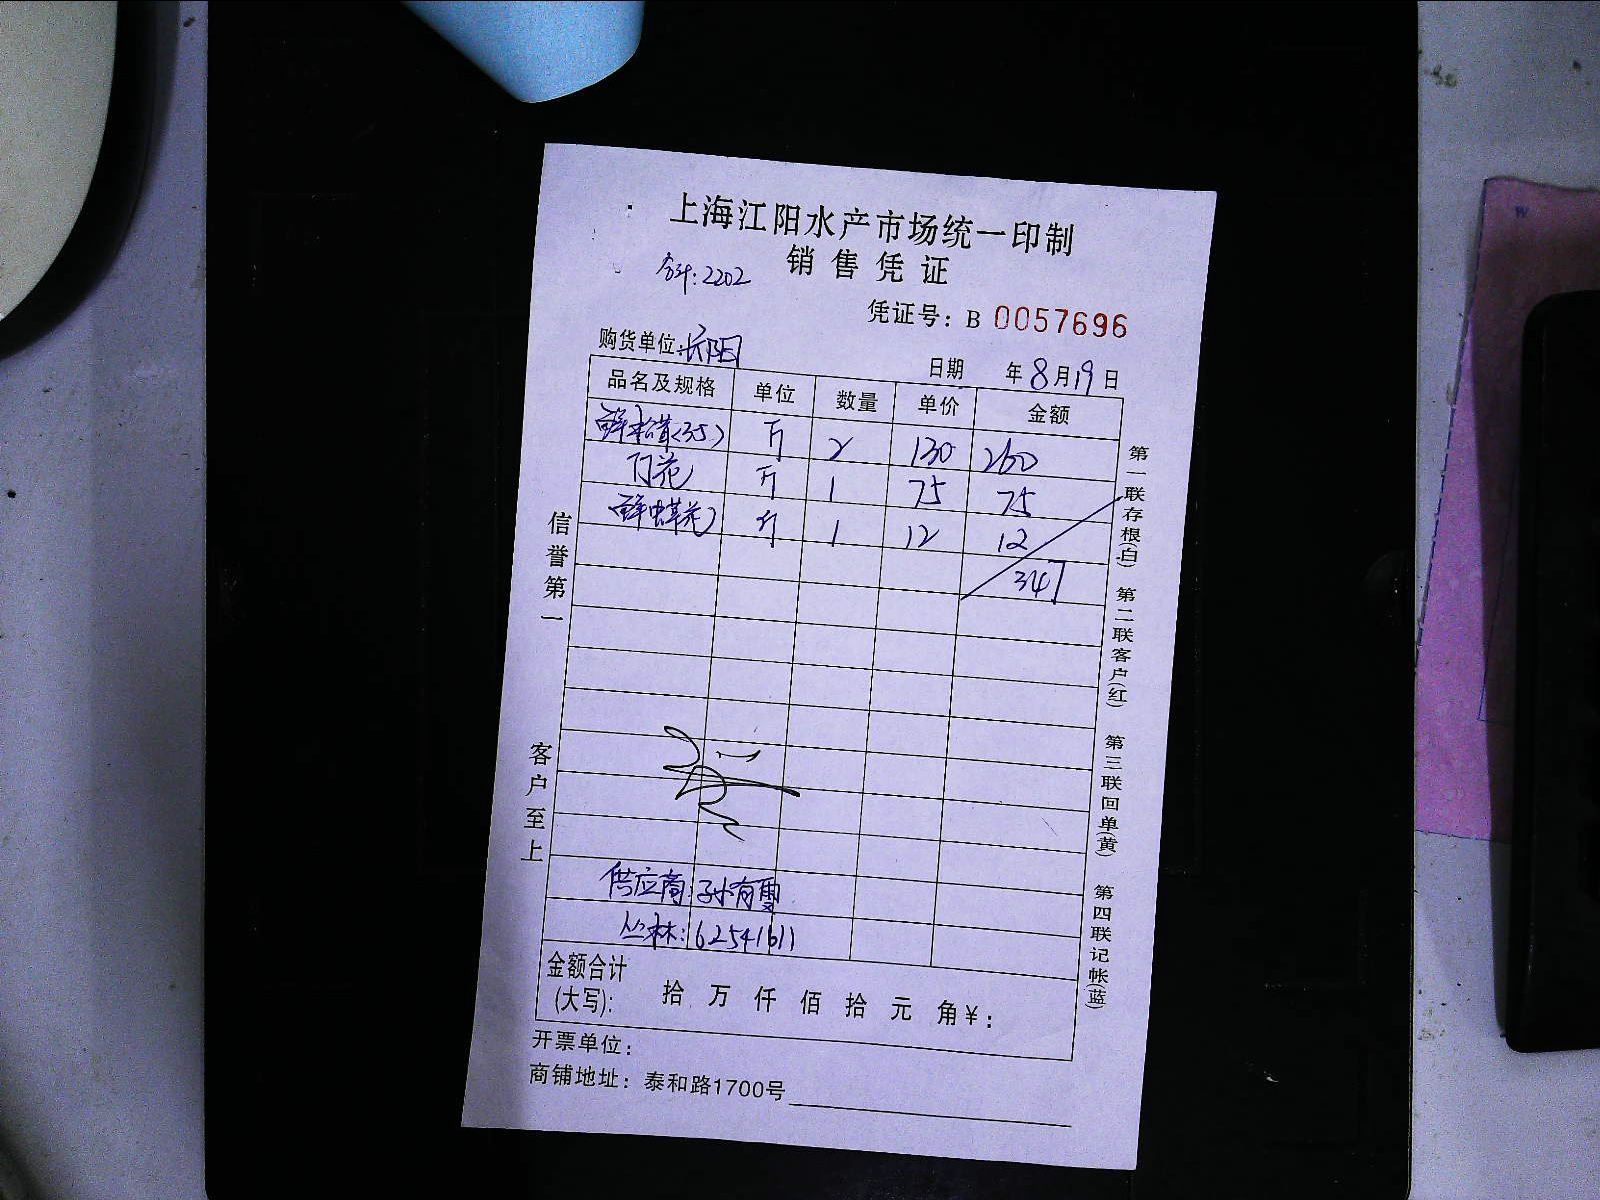 上海江阳水产市场统一印制
销售凭证
合计:2202
凭证号: B 0057696
购货单位:长阳
日期 年8月19日
品名及规格 单位 数量 单价 金额
鲜松茸(35) 斤 2 130 260
花 斤 1 75 75
鲜虫草花 斤 1 12 12
347
供应商:孙有雪
丛林:62541611
金额合计
(大写): 拾 万 仟 佰 拾 元 角¥:
开票单位:
商铺地址: 泰和路1700号
信誉第一
客户至上
第一联存根(白)
第二联客户(红)
第三联回单(黄)
第四联记帐(蓝)